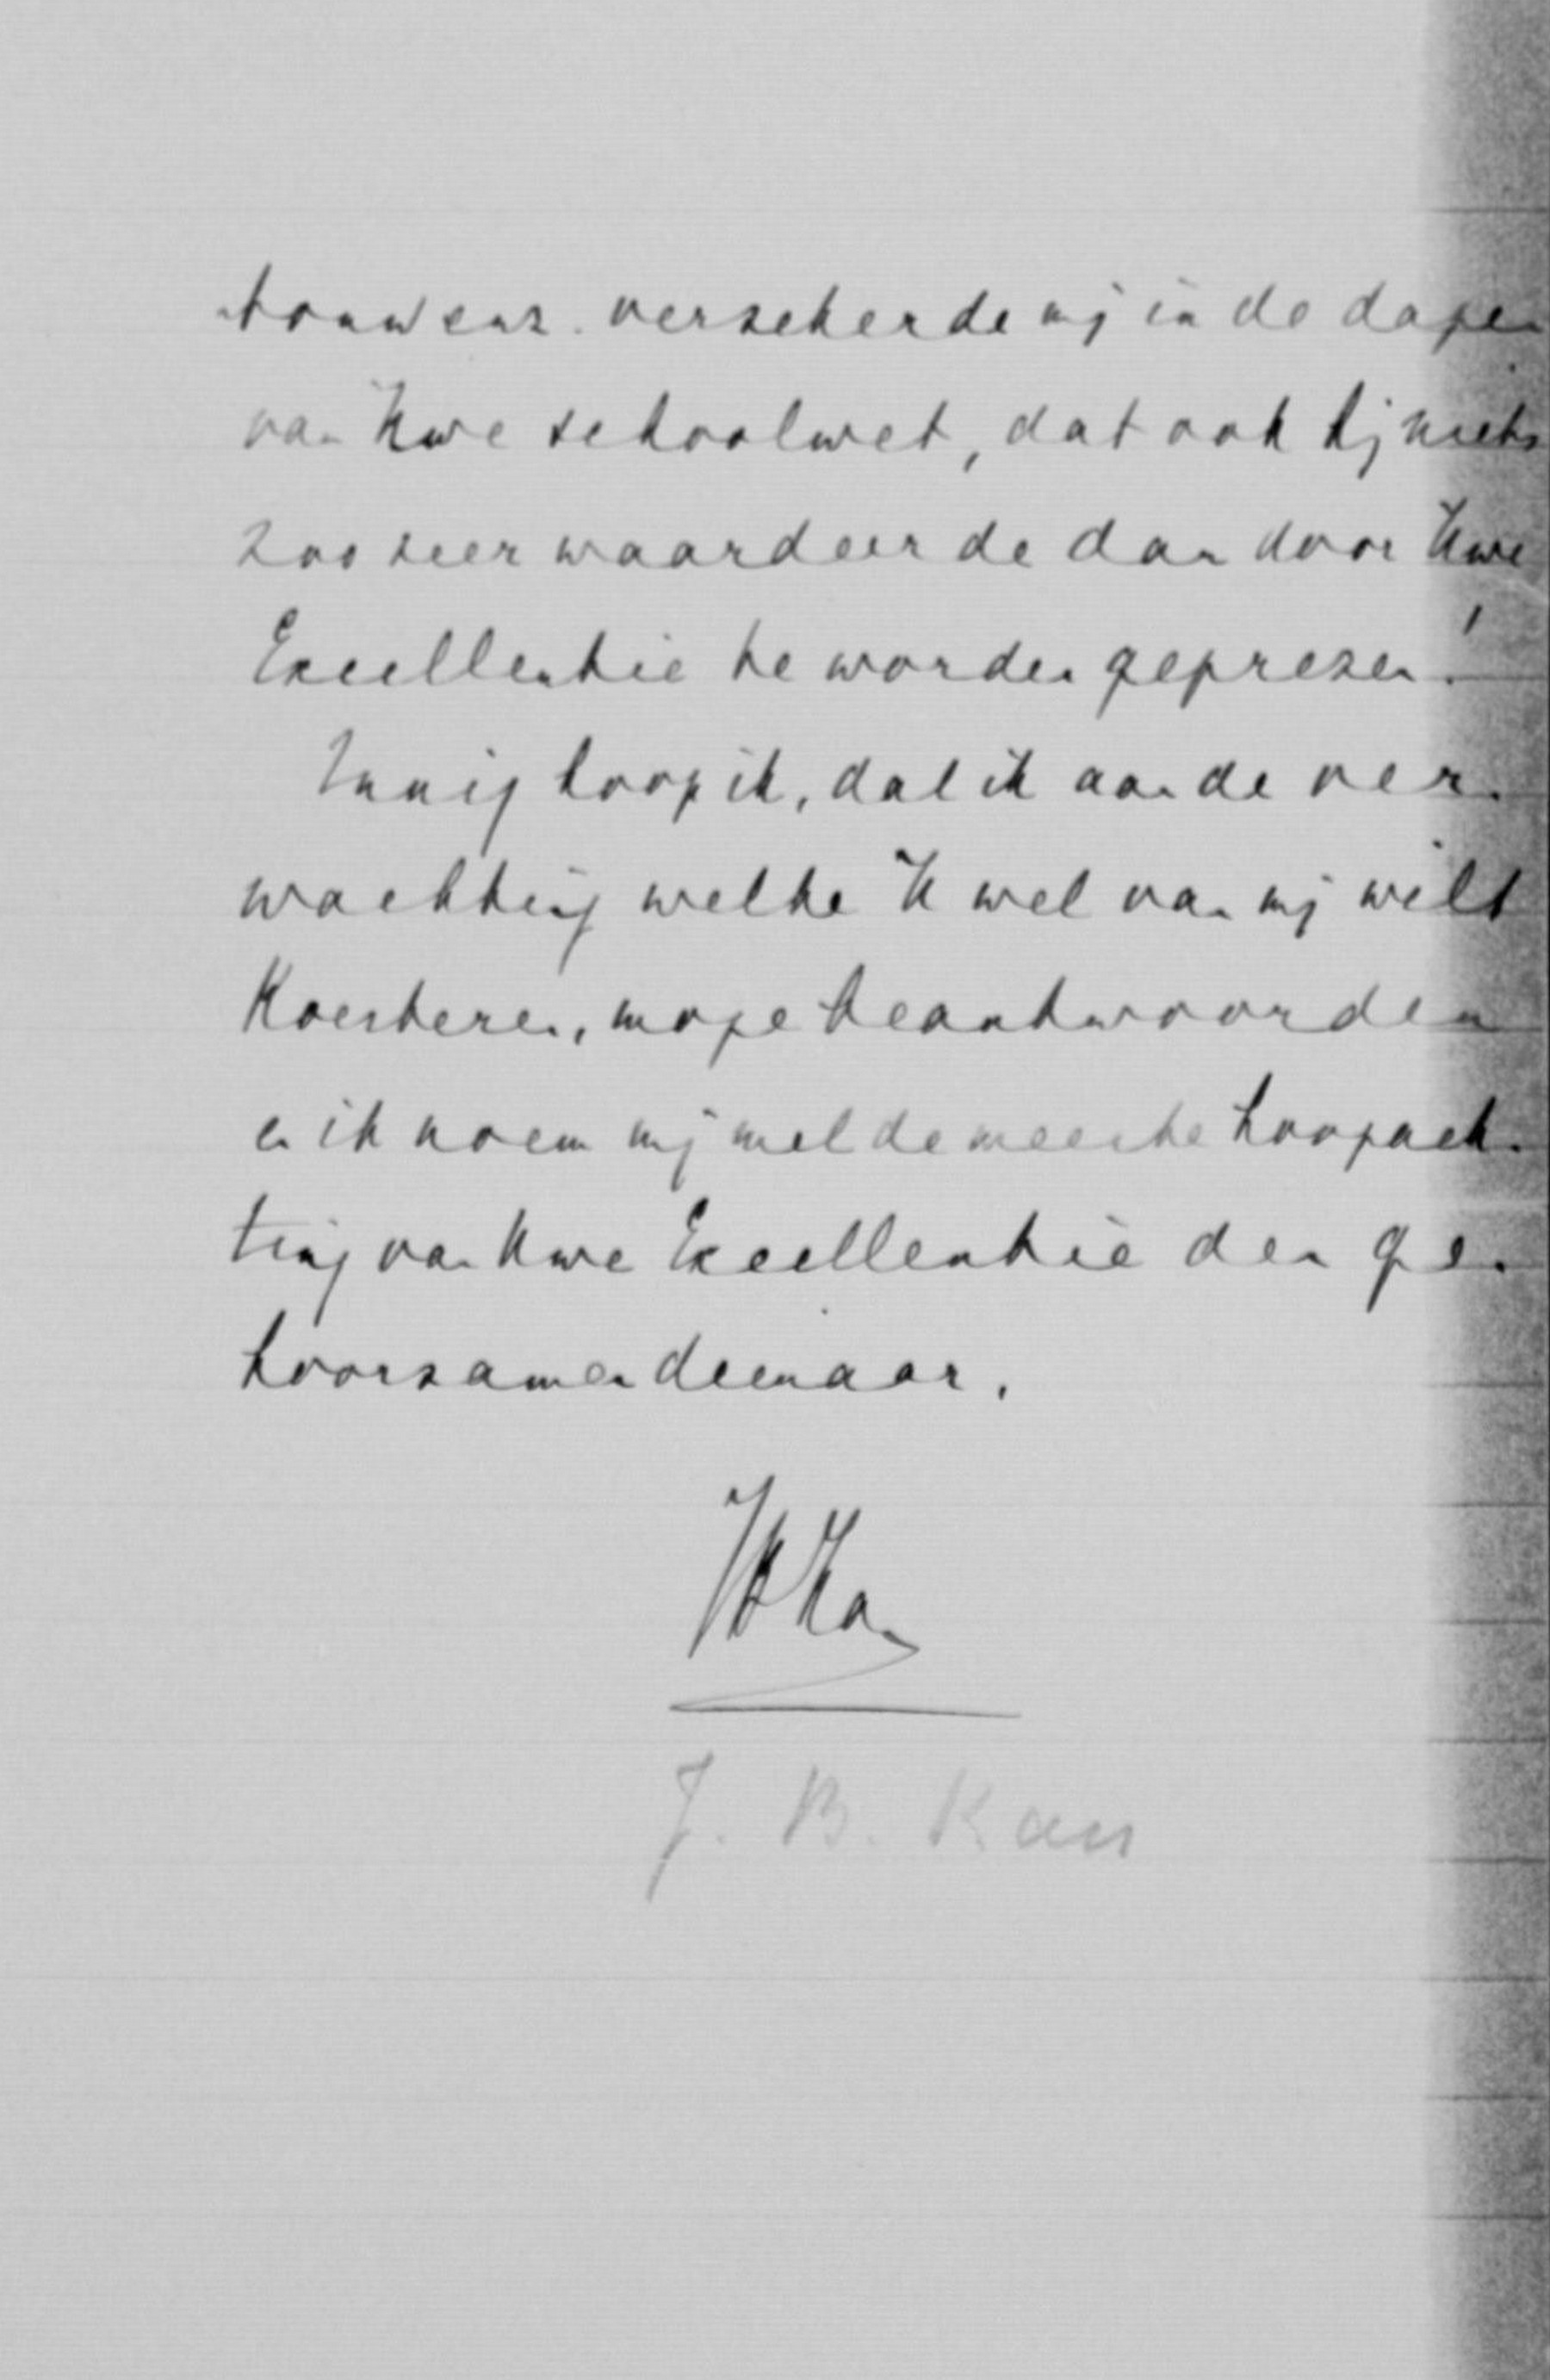 trouwens. verzekerde mij in de dagen
van Uwe schoolwet, dat ook hij niets
zoo zeer waardeerde dan door Uwe
Excellentie te worden geprezen!
Innig hoop ik, dat ik aan de ver-
wachting welke U wel van mij wilt
Koesteren, moge beantwoorden
en ik noem mij met de meeste hoogach-
ting van Uwe Excellentie den ge-
hoorzamen dienaar.
JBKan
J. B. Kan